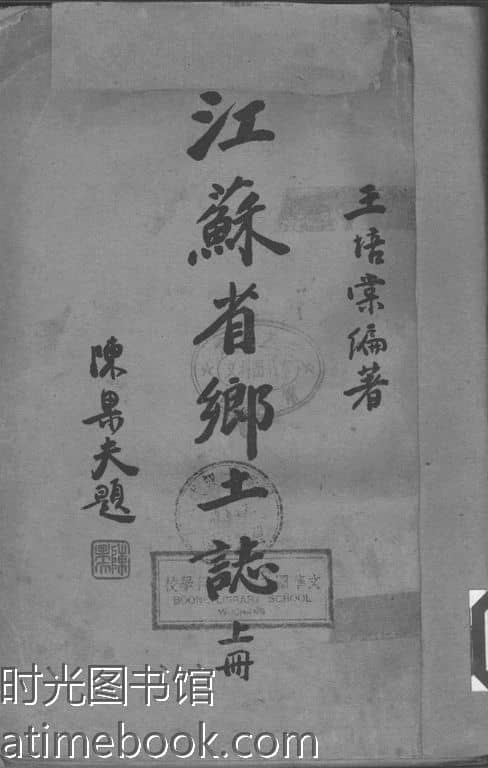 王培棠編著
江蘇省鄉土誌
上冊
陳果夫題
BOONE LIBRARY SCHOOL
WUCHANG
时光图书馆
atimebook.com